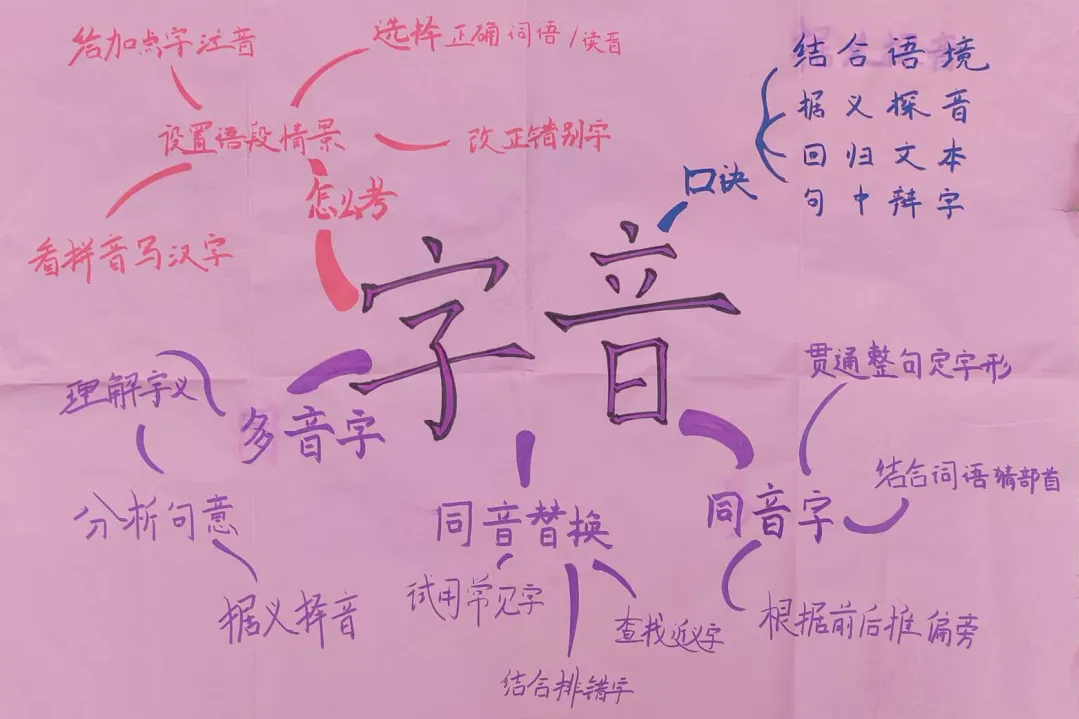 给加点字注音
选择正确词语/读音
设置语段情景
改正错别字
看拼音写汉字
怎么考
口诀
结合语境
据义探音
回归文本
句中辩字
字音
理解字义
多音字
分析句意
据义择音
同音替换
试用常见字
结合排错字
查找近义字
同音字
贯通整句定字形
结合词语猜部首
根据前后推偏旁